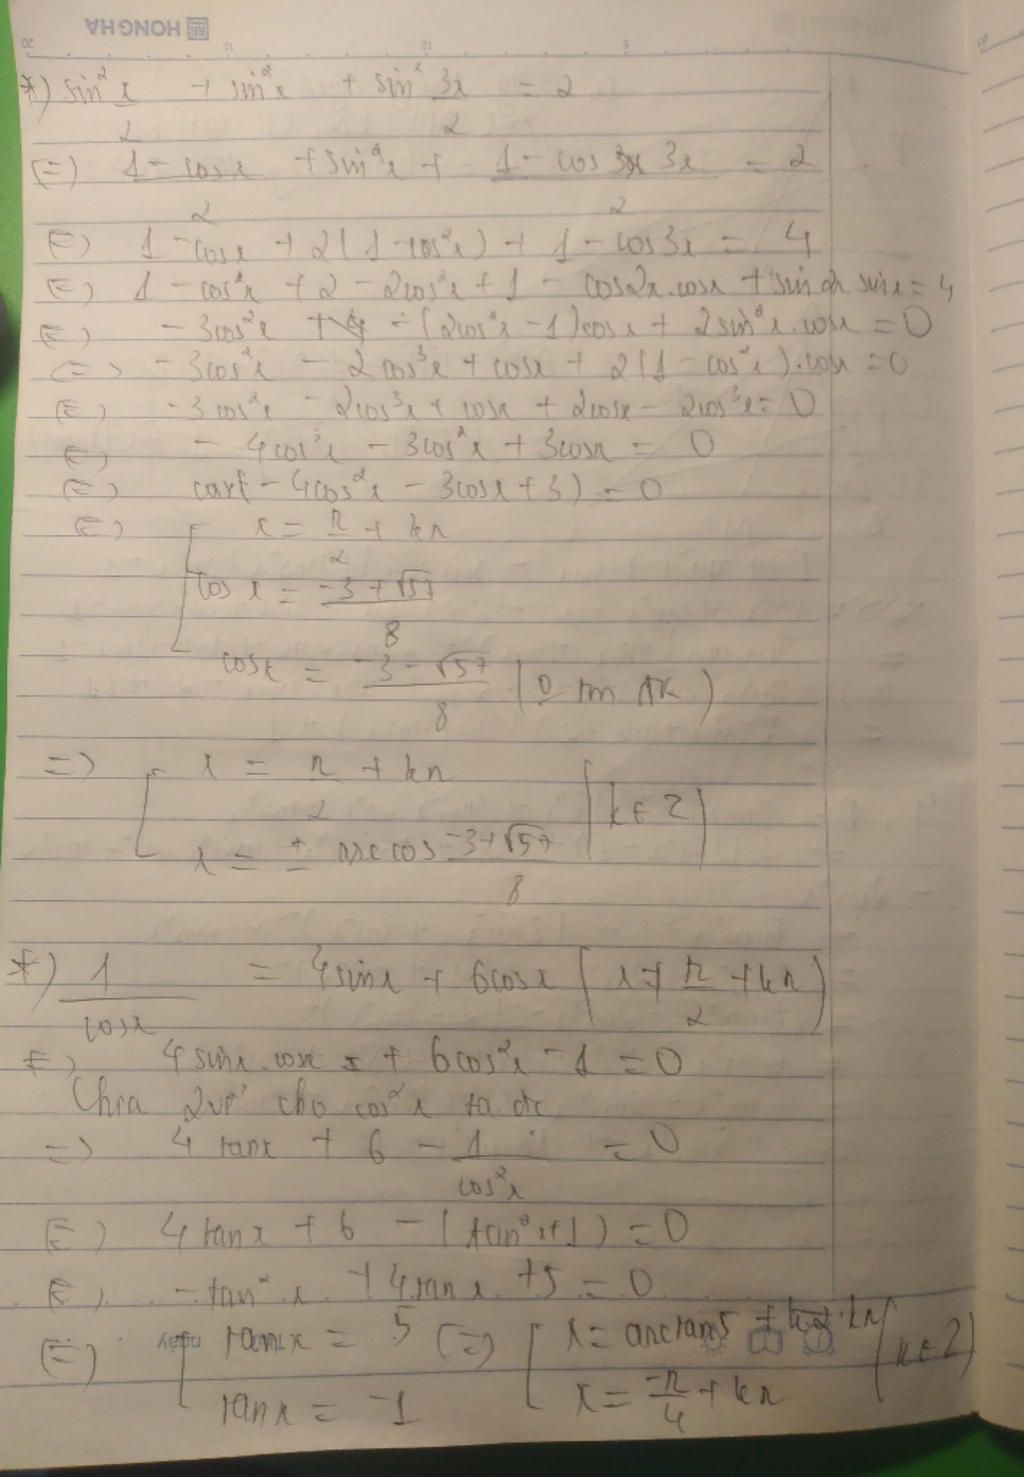 HONG HA
*) sin² x/2 + sin²x + sin² 3x/2 = 2
(=) (1 - cosx)/2 + sin²x + (1 - cos 3x)/2 = 2
(=) 1 - cosx + 2(1 - cos²x) + 1 - cos3x = 4
(=) 1 - cos²x + 2 - 2cos²x + 1 - cos2x.cosx + sin2x.sinx = 4
(=) - 3cos²x - (2cos²x - 1)cosx + 2sin²x.cosx = 0
(=) - 3cos²x - 2cos³x + cosx + 2(1 - cos²x).cosx = 0
(=) - 3cos²x - 2cos³x + cosx + 2cosx - 2cos³x = 0
(=) - 4cos³x - 3cos²x + 3cosx = 0
(=) cosx(- 4cos²x - 3cosx + 3) = 0
(=) [ x = π/2 + kπ
cos x = (-3 + √57)/8
cosx = (-3 - √57)/8 (0 tm ĐK)
=) [ x = π/2 + kπ
x = ± arccos (-3+√57)/8 (k ∈ Z)
*) 1/cosx = 4sinx + 6cosx (x ≠ π/2 + kπ)
(=) 4 sinx.cosx + 6cos²x - 1 = 0
Chia 2 vế cho cos²x ta đc
=) 4 tanx + 6 - 1/cos²x = 0
(=) 4 tanx + 6 - (tan²x+1) = 0
(=) - tan²x + 4tanx + 5 = 0
(=) [ tanx = 5 (=) [ x = arctan5 + kπ (k ∈ Z)
tanx = -1 x = -π/4 + kπ